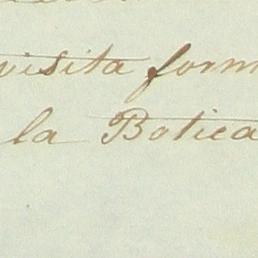 visita form
la Botica